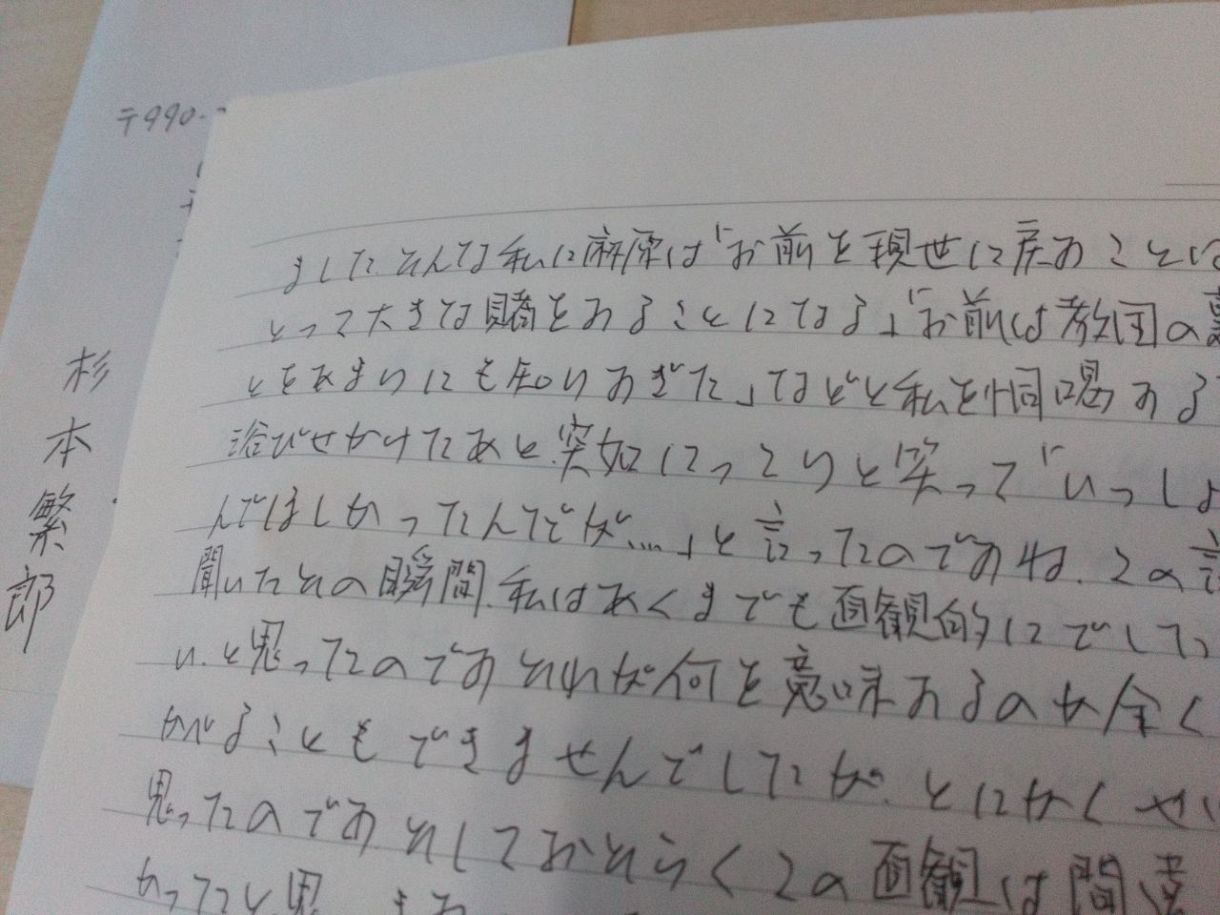 〒990-
杉本繁郎
ました。そんな私に麻原は「お前を現世に戻すことは
とって大きな賭をすることになる」「お前は教団の
とをあまりにも知りすぎた」などと私を恫喝する
浴びせかけたあと、突如にっこりと笑って「いっしょ
んでほしかったんでが…」と言ったのですね。この言
聞いたその瞬間、私はあくまでも直観的にでして
い、と思ったのです。それが何を意味するのか全く
かることもできませんでしたが、とにかく
思ったのです。そしておそらくこの直観は間違
かったと思